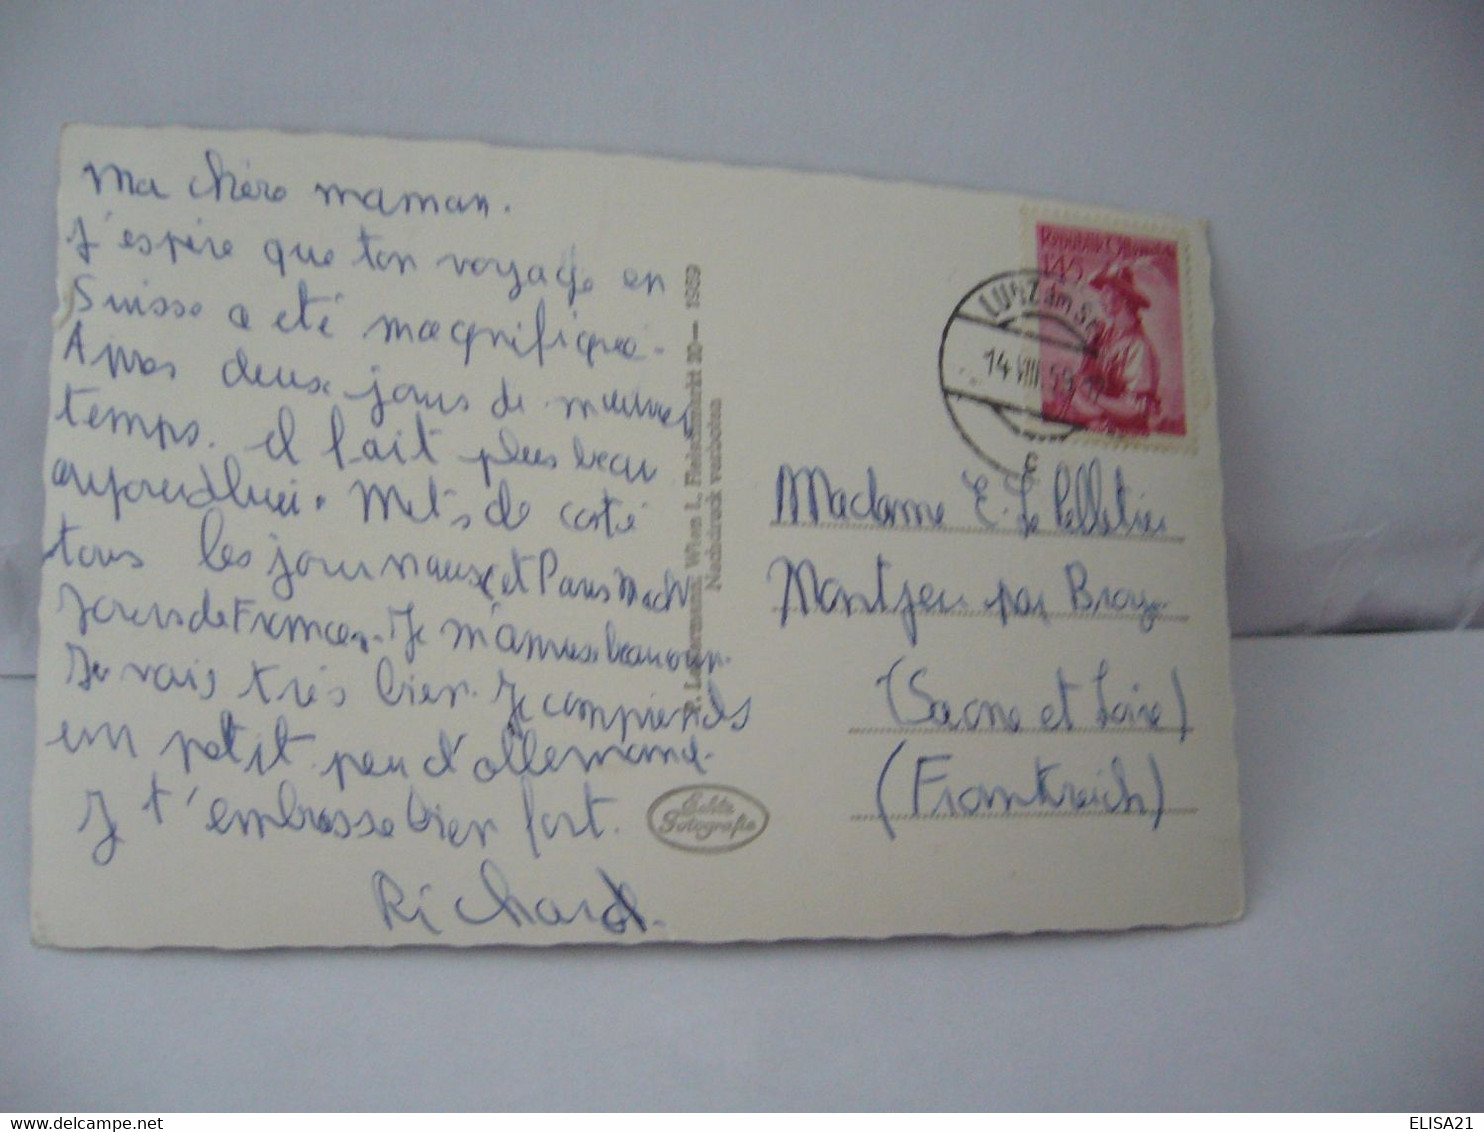 Ma chère maman.
J'espère que ton voyage en
Suisse a été magnifique.
Apres deux jours de mauvais
temps. il fait plus beau
aujourdhui. Mets de coté
tous les journaux et Paris Mach
Jours de France. Je m'amuse beaucoup.
Je vais très bien. Je comprends
un petit peu d'allemand.
Je t'embrasse bien fort.
Richard.
P. Ledermann, Wien I., Fleischmarkt 20 — 1959
Nachdruck verboten
Echte
Fotografie
Republik Österreich
1.45
LUNZ am See
14.VIII.59
c
Madame E. Le Pelletier
Montjeu par Broye
(Saone et Loire)
(Frankreich)
ELISA21